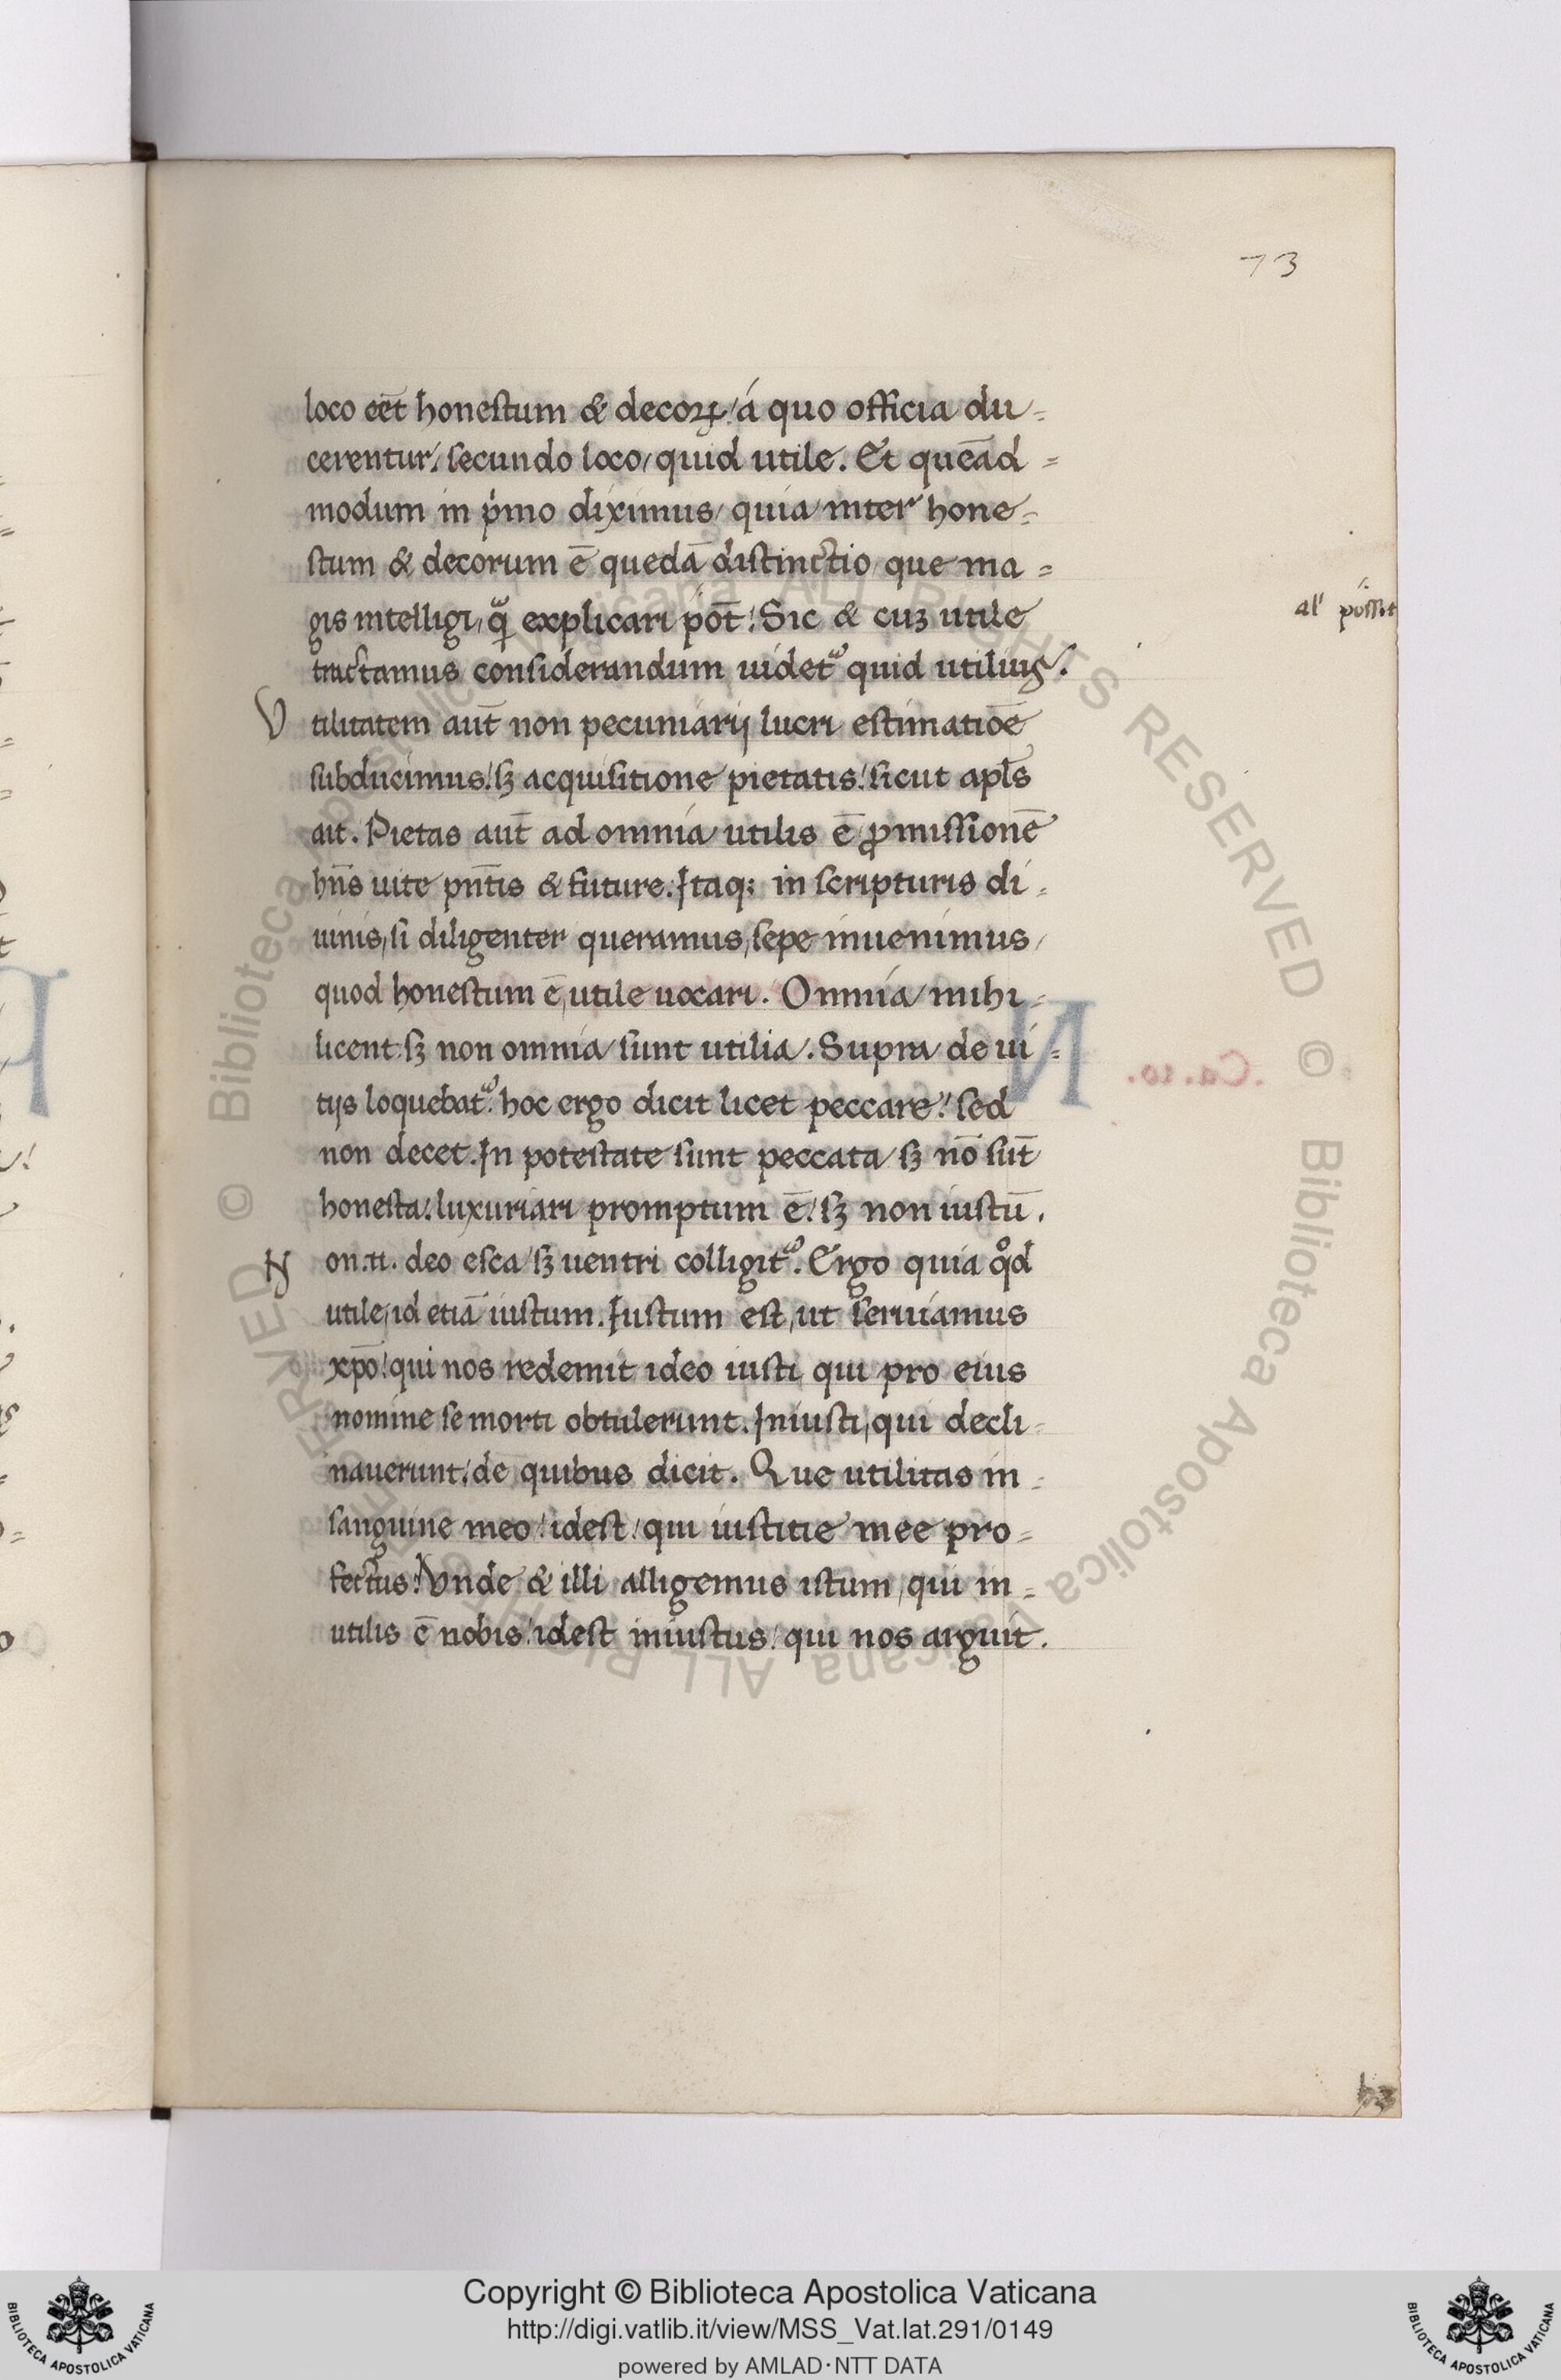 73
loco eēt honestum & decoꝝ / á quo officia du=
cerentur. secundo loco / quid utile. Et queād=
modum in p̓mo diximus / quia inter hone=
stum & decorum ē quedā distinctio que ma=
gis intelligi, qᷓ explicari pōt. Sic & cuꝫ utile
al' possit
tractamus considerandum uidetᷣ quid utiliꝰ.
V tilitatem aut̄ non pecuniarij lucri estimatiōe
subducimus. sꝫ acquisitione pietatis. sicut apl̄s
ait. Pietas aut̄ ad omnia utilis ē ꝓmissionē
hn̄s uite pn̄tis & future. Itaq; in scripturis di=
uinis, si diligenter queramus, sepe inuenimus /
quod honestum ē, utile uocari. Omnia mihi=
licent. sꝫ non omnia sunt utilia. Supra de ui=
tijs loquebatᷣ. hoc ergo dicit licet peccare. sed
non decet. In potestate sunt peccata / sꝫ nō sūt
honesta. luxuriari promptum ē. sꝫ non iustū.
N on .n. deo esca / sꝫ uentri colligitᷣ. Ergo quia qͦd
utile, id etiā iustum. Iustum est, ut seruiamus
xp̄o. qui nos redemit ideo iusti, qui pro eius
nomine se morti obtulerunt. Iniusti, qui decli=
nauerunt. de quibus dicit. Que utilitas in=
sanguine meo. idest. qui iustitie mee pro=
fectus. Vnde & illi alligemus istum, qui in=
utilis ē nobis. idest iniustus. qui nos arguit.
.Ca.10.
N
h3
Copyright © Biblioteca Apostolica Vaticana
http://digi.vatlib.it/view/MSS_Vat.lat.291/0149
powered by AMLAD·NTT DATA
BIBLIOTECA APOSTOLICA VATICANA
BIBLIOTECA APOSTOLICA VATICANA